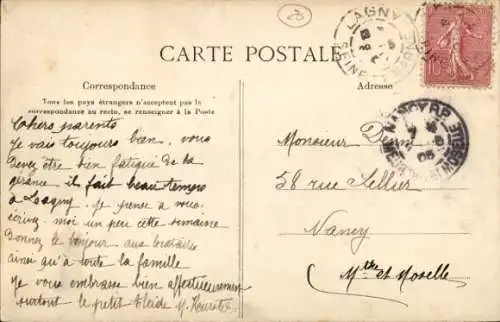 LAGNY
SEINE ET MARNE
10
CARTE POSTALE
Correspondance
Tous les pays étrangers n'acceptent pas la
correspondance au recto, se renseigner à la Poste
Adresse
NANCY R.P.
05
MEURTHE ET MOSELLE
Cahers parents
Je vais toujours bien, vous
devez être bien fatigué de la
gérance il fait beau temps
à Lagny. Je pense à vous.
écrivez moi un peu cette semaine
Donnez le bonjour aux
ainsi qu'à toute la famille
Je vous embrasse bien affectueusement
surtout le petit
Monsieur
58 rue
Nancy
Mthe et Moselle